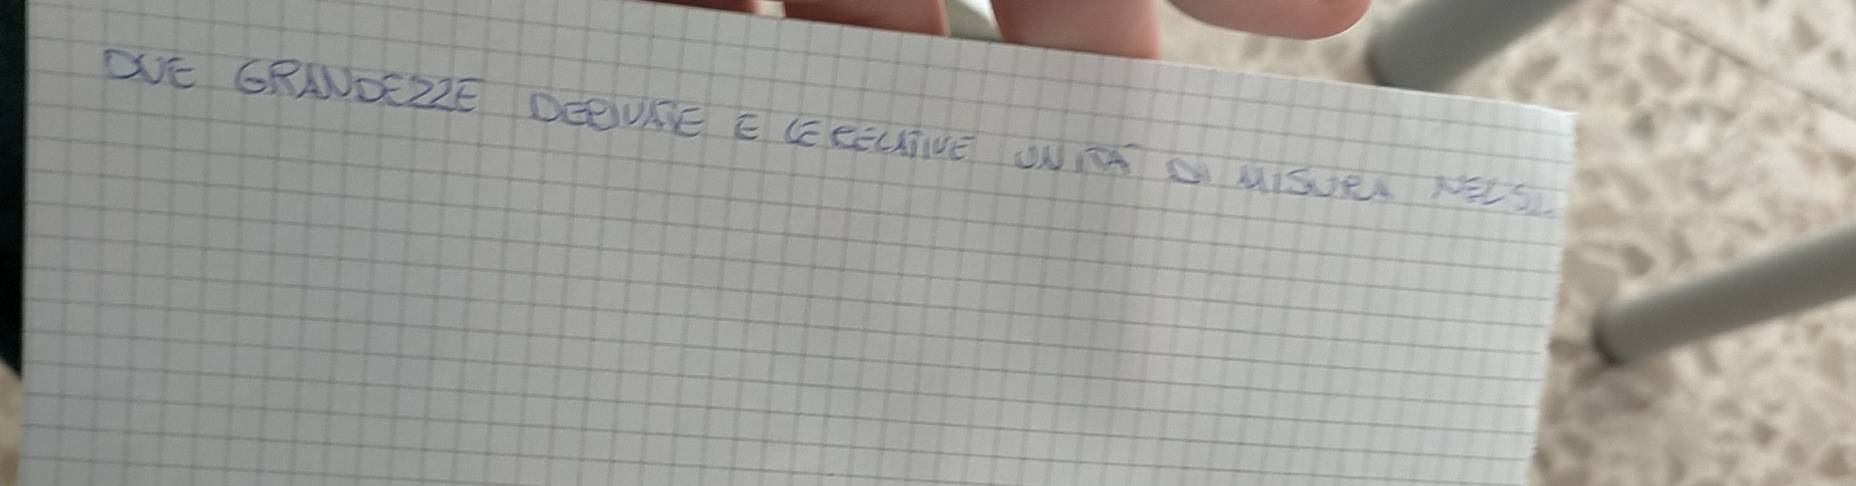 DUE GRANDEZZE DERIVATE E LE RELATIVE UNITÀ DI MISURA NEL S.I.